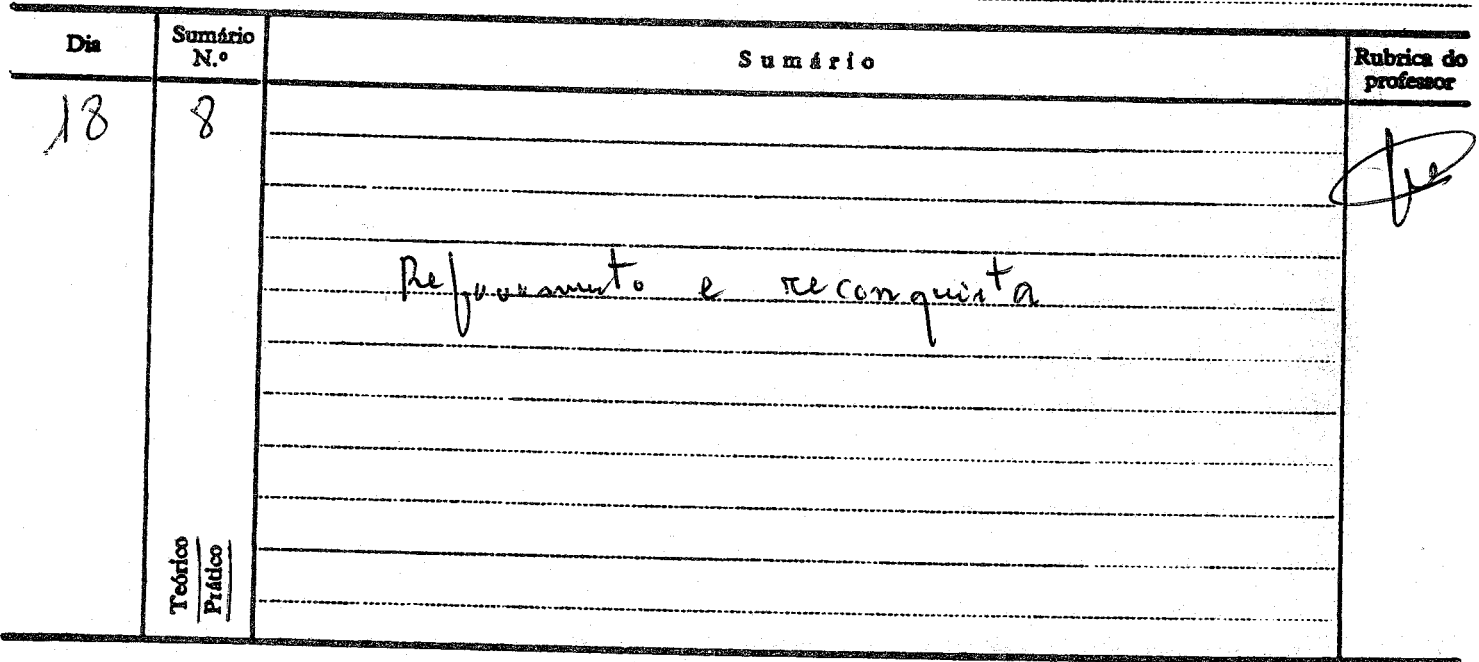 Dia
Sumário N.º
Sumário
Rubrica do professor
18
8
e reconquista
Teórico
Prático